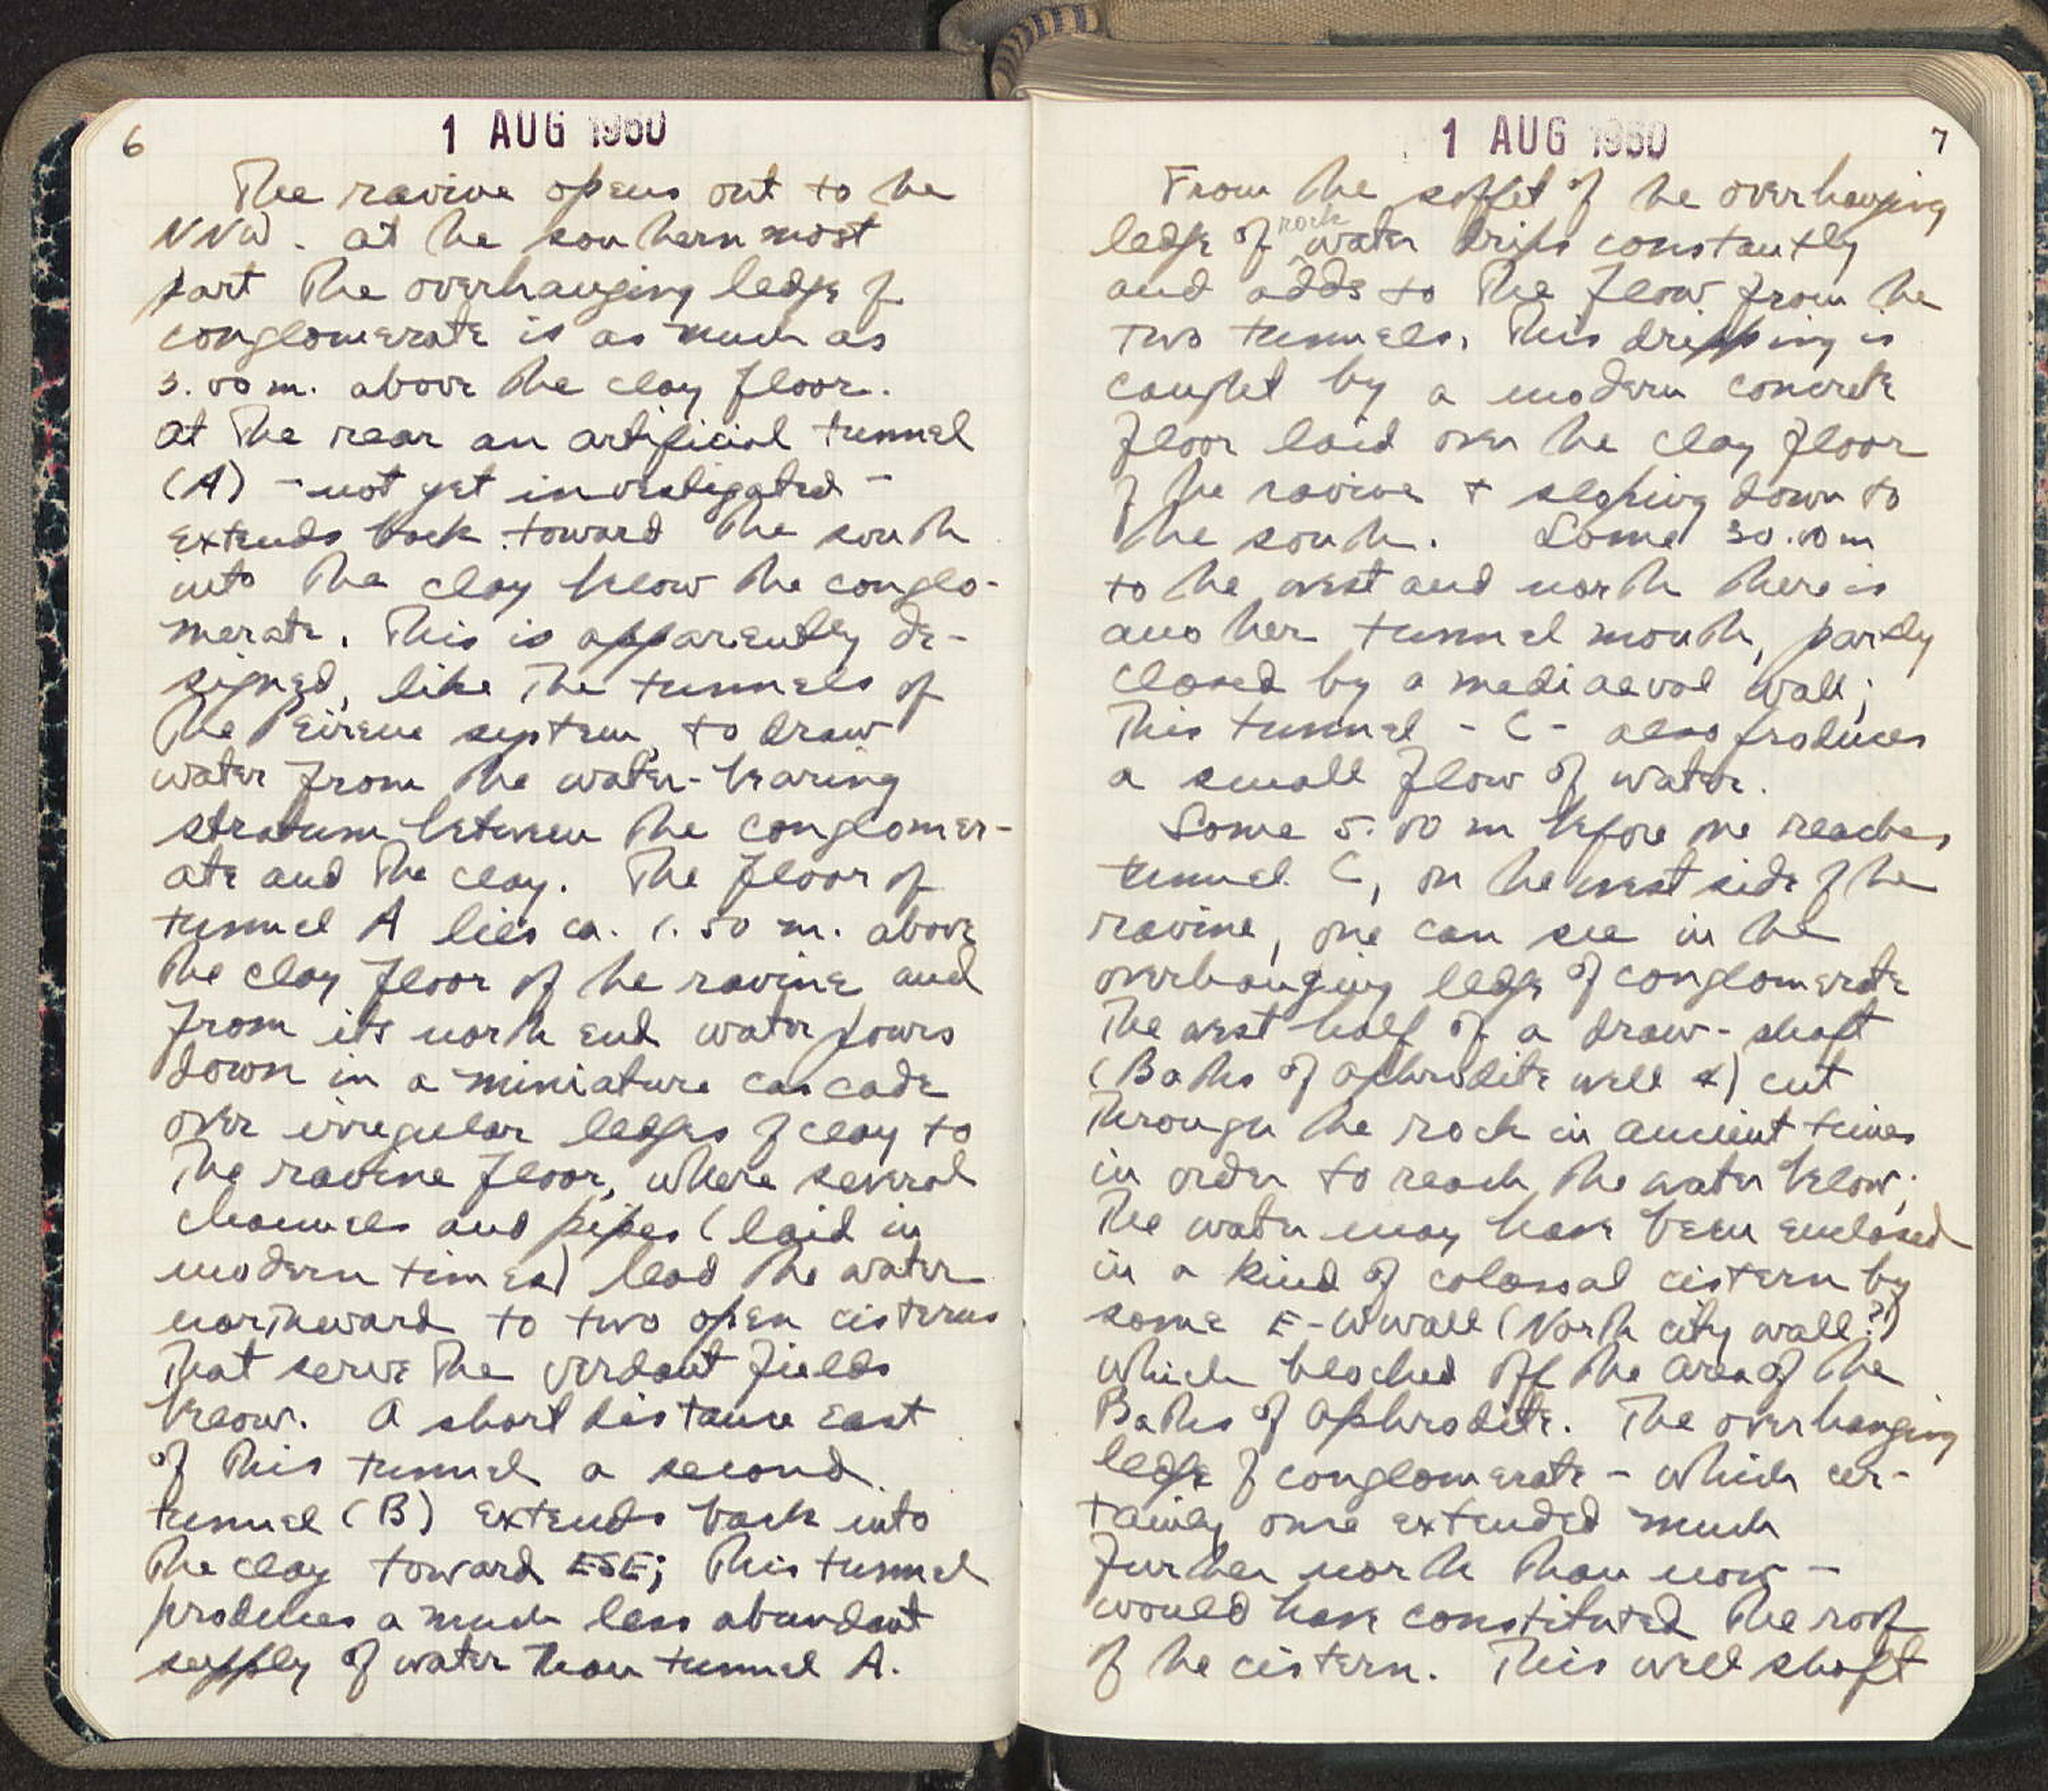 6
1 AUG 1960
The ravine opens out to the
NNW. At the southernmost
part the overhanging ledge of
conglomerate is as much as
3.00 m. above the clay floor.
At the rear an artificial tunnel
(A) - not yet investigated -
extends back toward the south
into the clay below the conglo-
merate. This is apparently de-
signed, like the tunnels of
the Peirene system, to draw
water from the water-bearing
stratum between the conglomer-
ate and the clay. The floor of
tunnel A lies ca. 1.50 m. above
the clay floor of the ravine and
from its north end water pours
down in a miniature cascade
over irregular ledges of clay to
the ravine floor, where several
channels and pipes (laid in
modern times) lead the water
northward to two open cisterns
that serve the verdant fields
below. A short distance east
of this tunnel a second
tunnel (B) extends back into
the clay toward ESE; this tunnel
produces a much less abundant
supply of water than tunnel A.
1 AUG 1960
7
From the soffit of the overhanging
ledge of rock water drips constantly
and adds to the flow from the
two tunnels. This dripping is
caught by a modern concrete
floor laid over the clay floor
of the ravine + sloping down to
the south. Some 30.00 m
to the west and north there is
another tunnel mouth, partly
closed by a mediaeval wall;
this tunnel - C - also produces
a small flow of water.
Some 5.00 m before one reaches
tunnel C, on the west side of the
ravine, one can see in the
overhanging ledge of conglomerate
the west half of a draw-shaft
(Baths of Aphrodite well α) cut
through the rock in ancient times
in order to reach the water below;
the water may have been enclosed
in a kind of colossal cistern by
some E-W wall (North city wall?)
which blocked off the area of the
Baths of Aphrodite. The overhanging
ledge of conglomerate - which cer-
tainly once extended much
further north than now -
would have constituted the roof
of the cistern. This well shaft